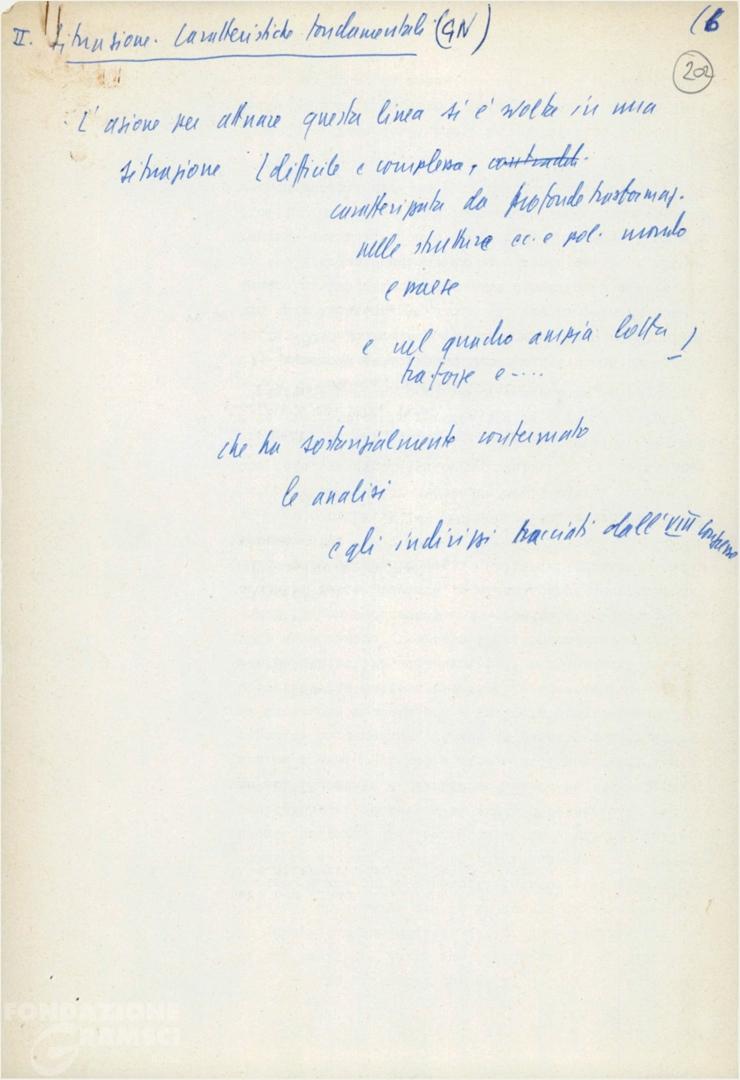 II. Situazione. Caratteristiche fondamentali (GN)
(6
202
L'azione per attuare questa linea si è svolta in una
situazione (difficile e complessa, contradd.
caratterizzata da profonde trasformaz.
nelle strutture ec. e pol. mondo
e paese
e nel quadro ampia lotta )
tra forze e ....
che ha sostanzialmente confermato
le analisi
e gli indirizzi tracciati dall'VIII Congresso
FONDAZIONE
GRAMSCI